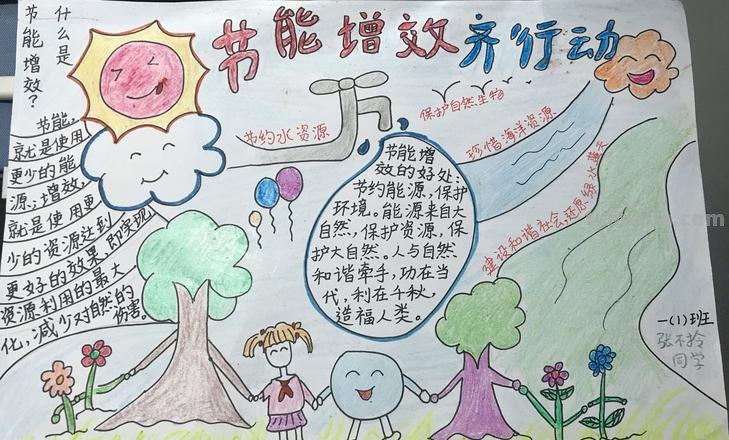 节能增效 齐行动
什么是
节能增效？
节能，
就是使用
更少的能
源；增效，
就是使用更
少的资源达到
更好的效果，即实现
资源利用的最大
化，减少对自然的
伤害。
节约水资源
保护自然生物
珍惜海洋资源
建设和谐社会，还原绿水蓝天
节能增
效的好处：
节约能源，保护
环境。能源来自大
自然，保护资源，保
护大自然。人与自然
和谐牵手，功在当
代，利在千秋，
造福人类。
一(1)班
同学